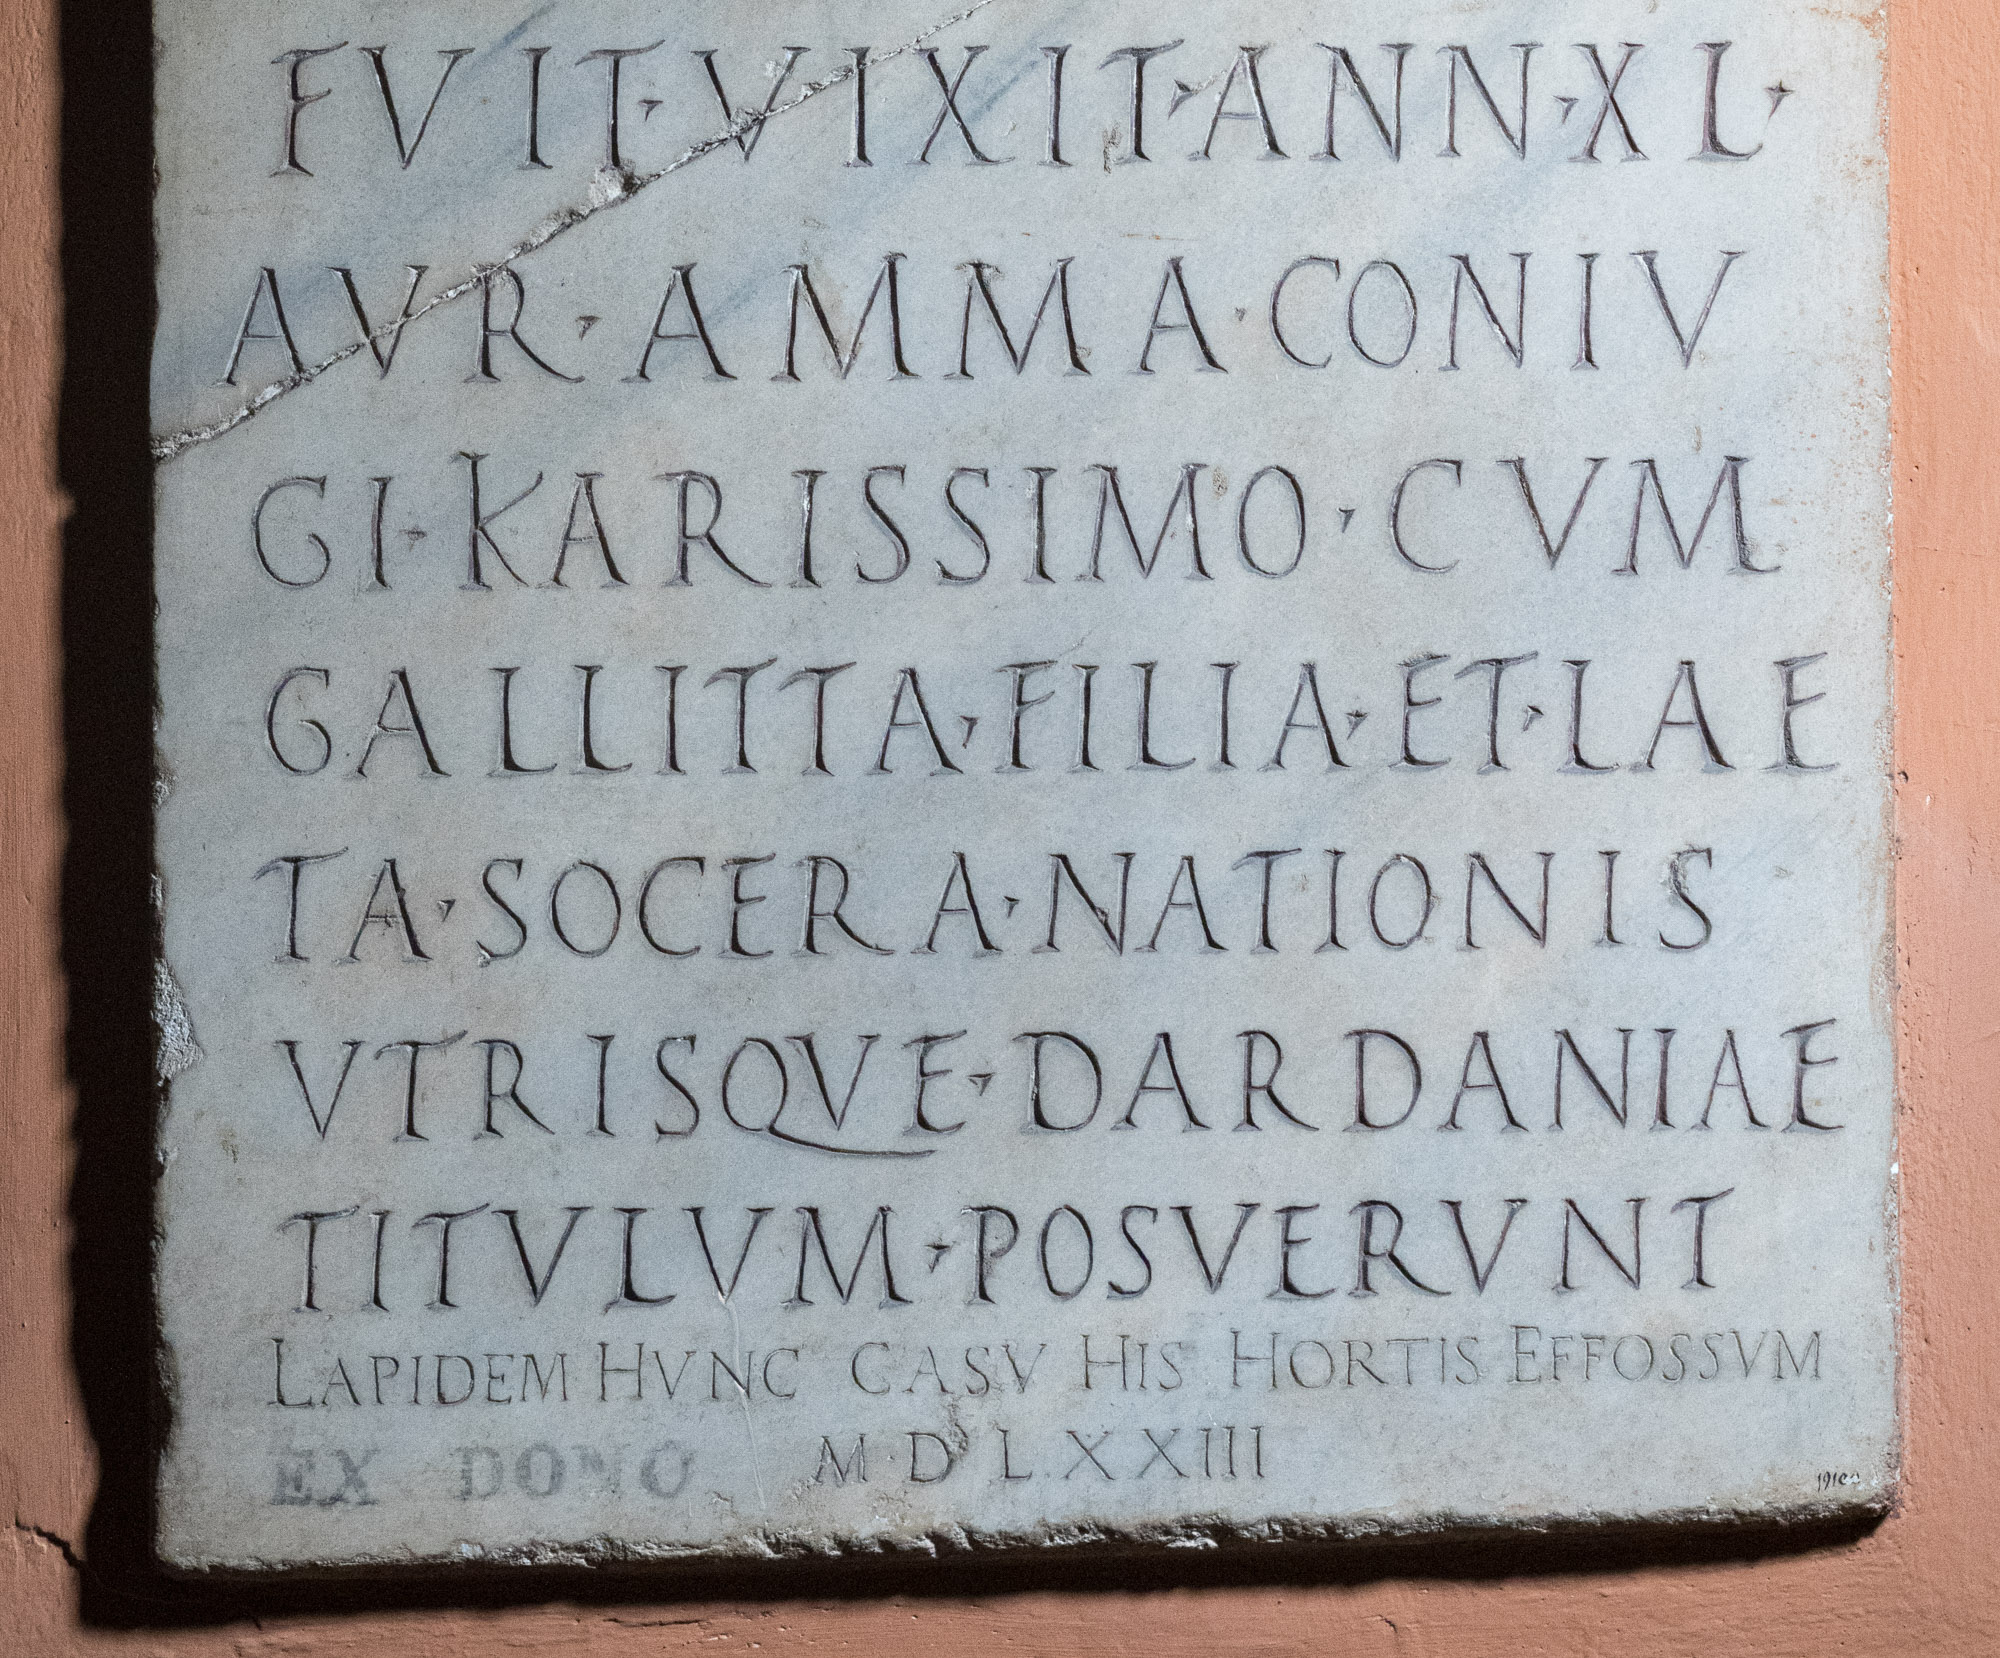 FVIT·VIXIT·ANN·XL·
AVR·AMMA·CONIV
GI·KARISSIMO·CVM
GALLITTA·FILIA·ET·LAE
TA·SOCERA·NATIONIS
VTRISQVE·DARDANIAE
TITVLVM·POSVERVNT
LAPIDEM HVNC CASV HIS HORTIS EFFOSSVM
EX DONO M·D LXXIII